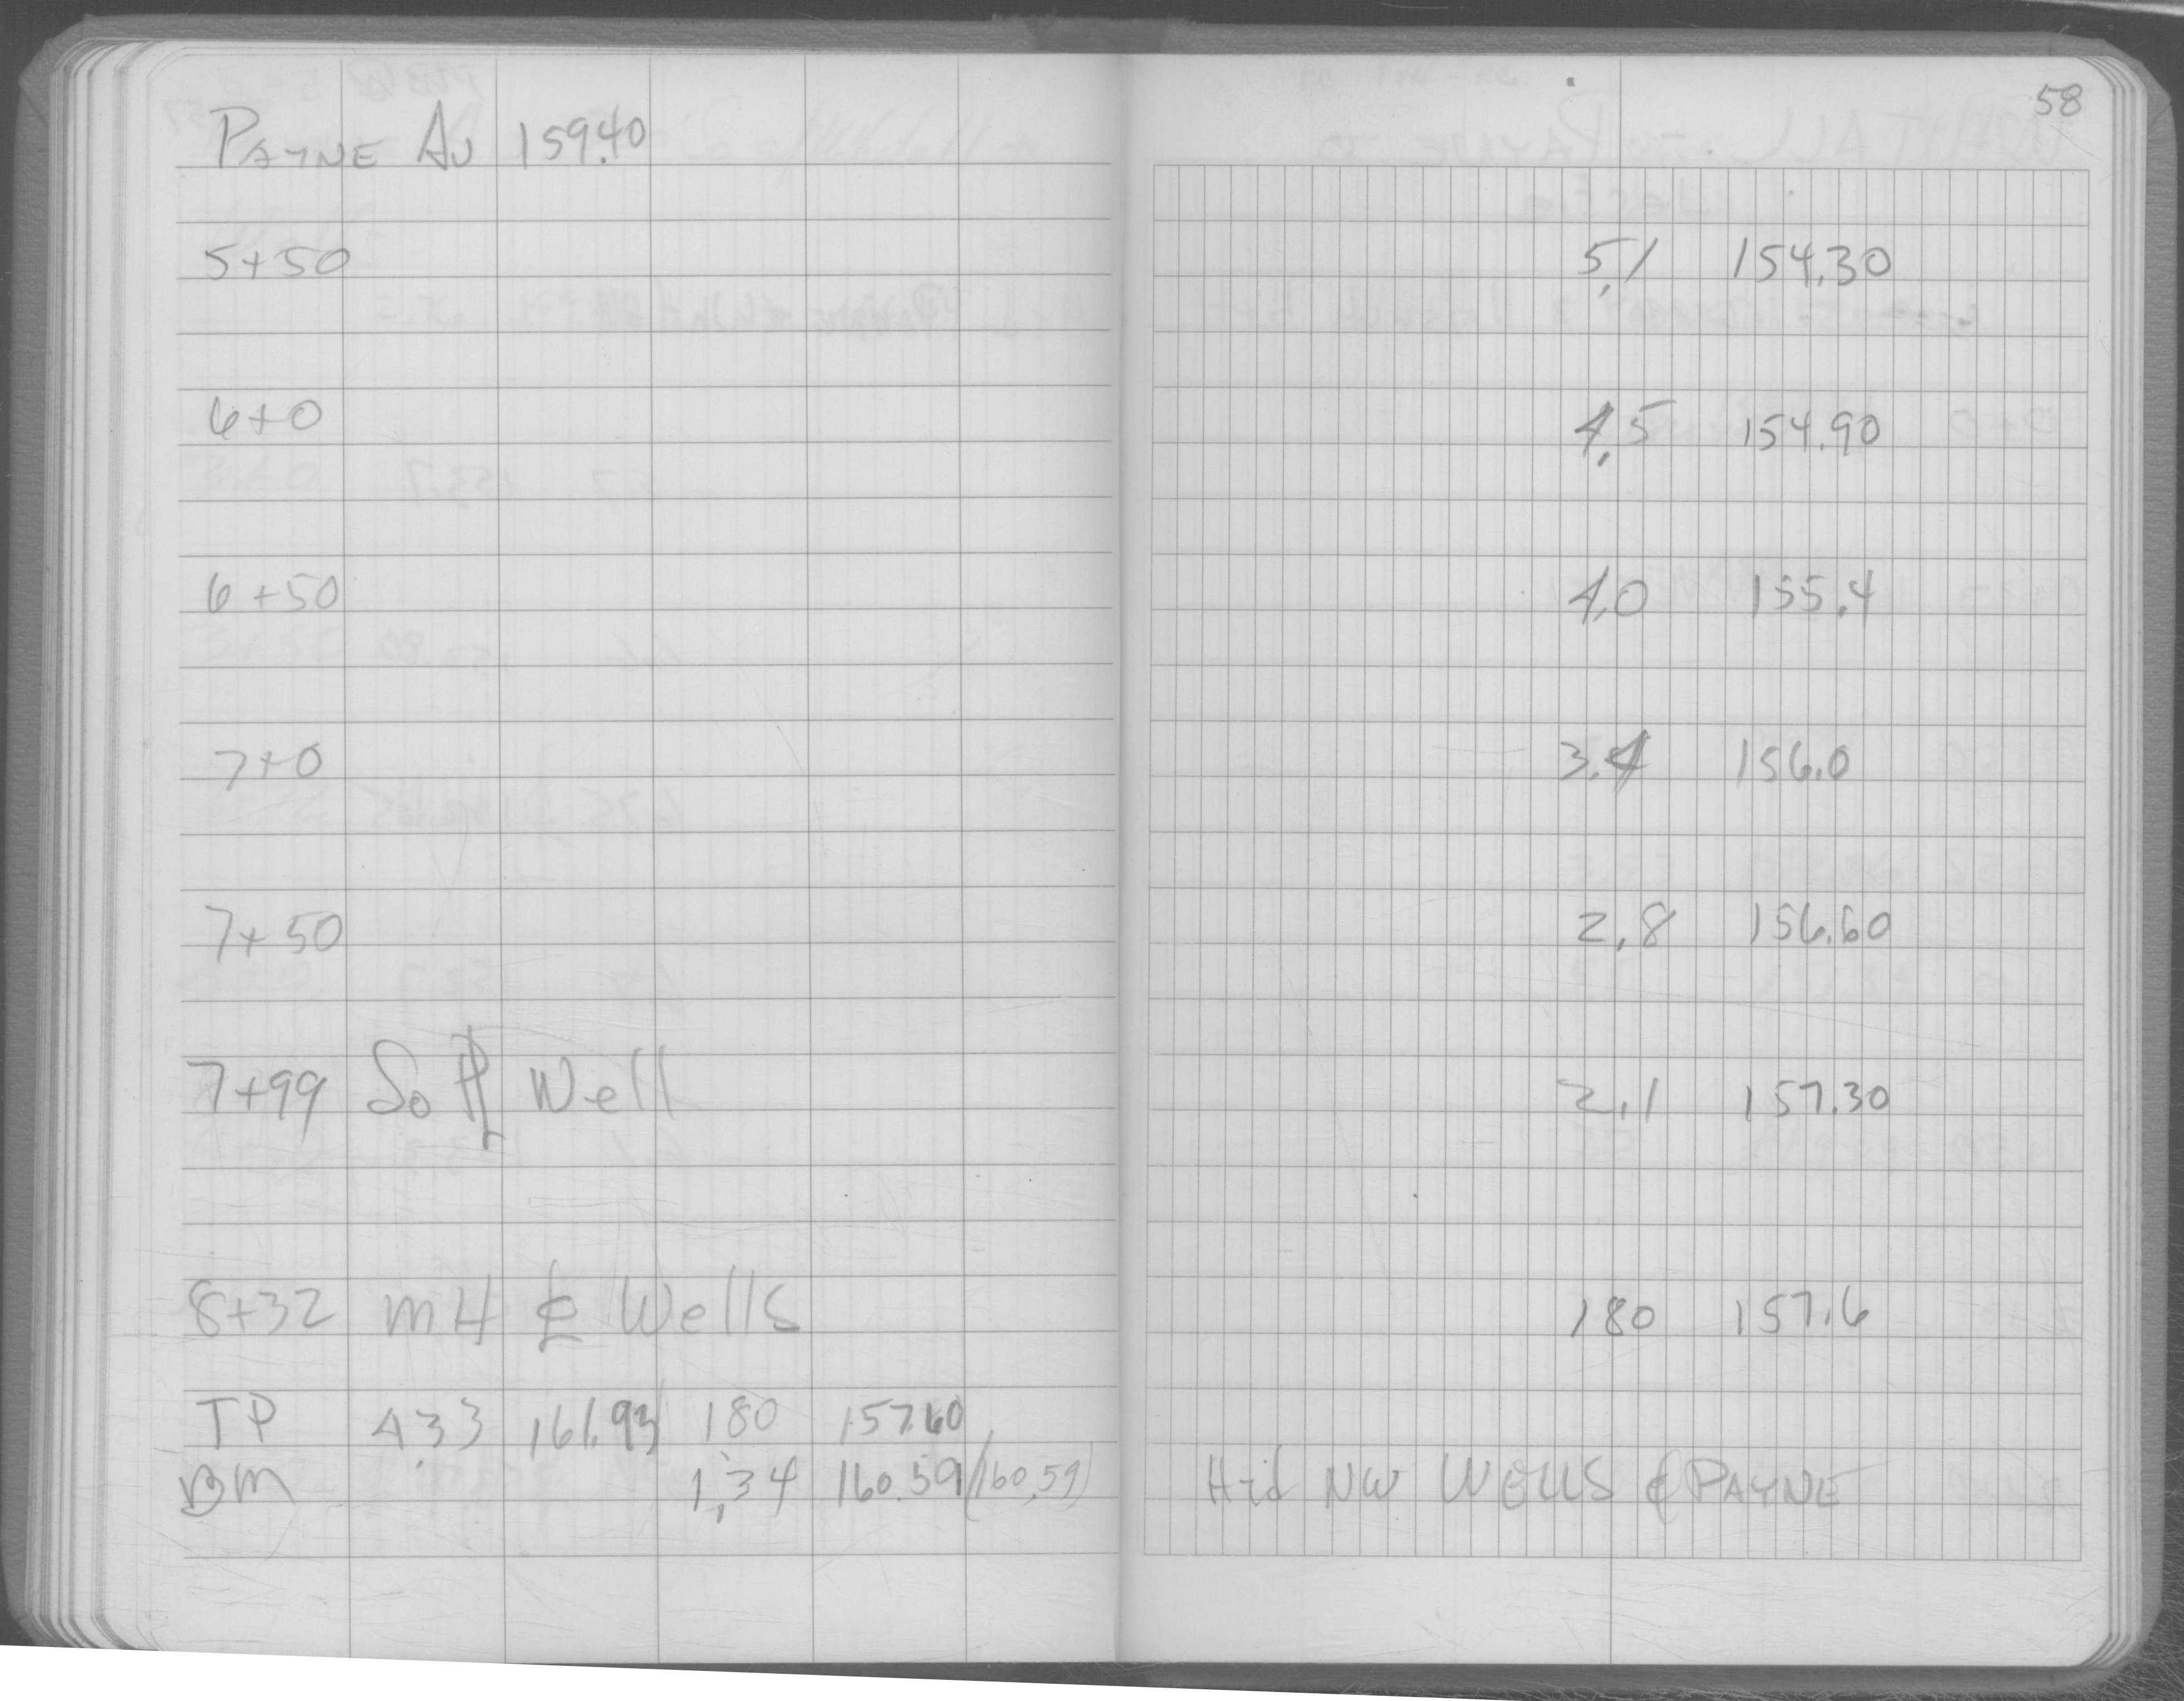 58
PAYNE AV 159.40
5+50 5.1 154.30
6+0 4.5 154.90
6+50 4.0 155.4
7+0 3.4 156.0
7+50 2.8 156.60
7+99 So ⅊ Well 2.1 157.30
8+32 MH ℄ Wells 180 157.6
TP 4.33 161.93 180 157.60
BM 1.34 160.59 (160.59) Hid NW WELLS & PAYNE